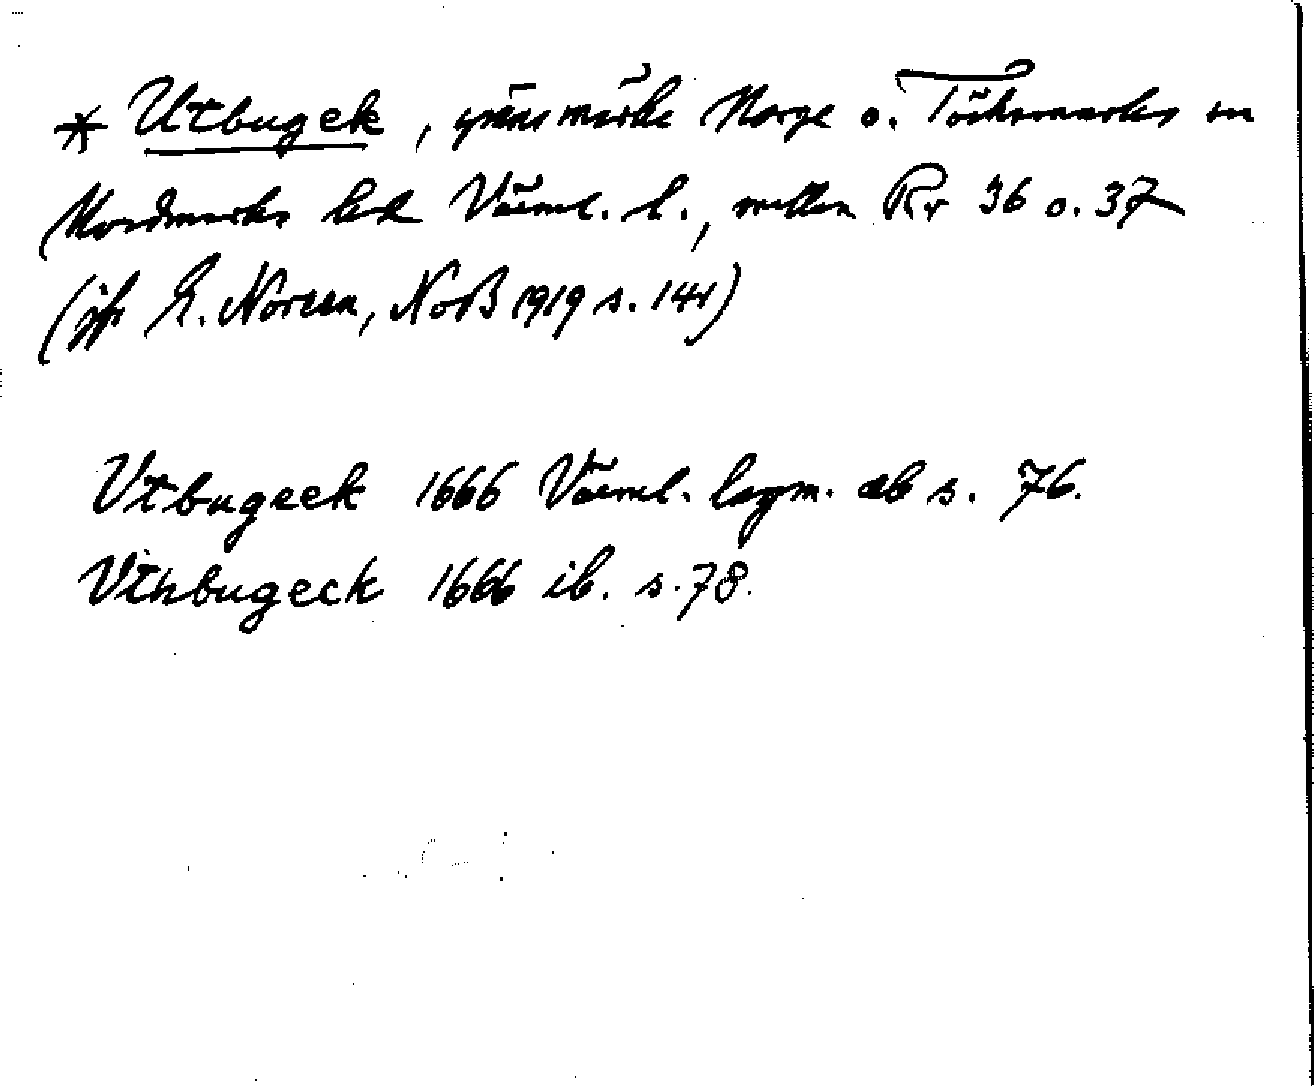 * Utbugek, gränsmärke Norge o. Töcksmarks sn
Nordmarks hd Värml. l., mellan Rr 36 o. 37
(jfr E. Noreen, NoB 1919 s. 141)
Utbugeek 1666 Värml. lagm. db s. 76.
Vthbugeck 1666 ib. s. 78.